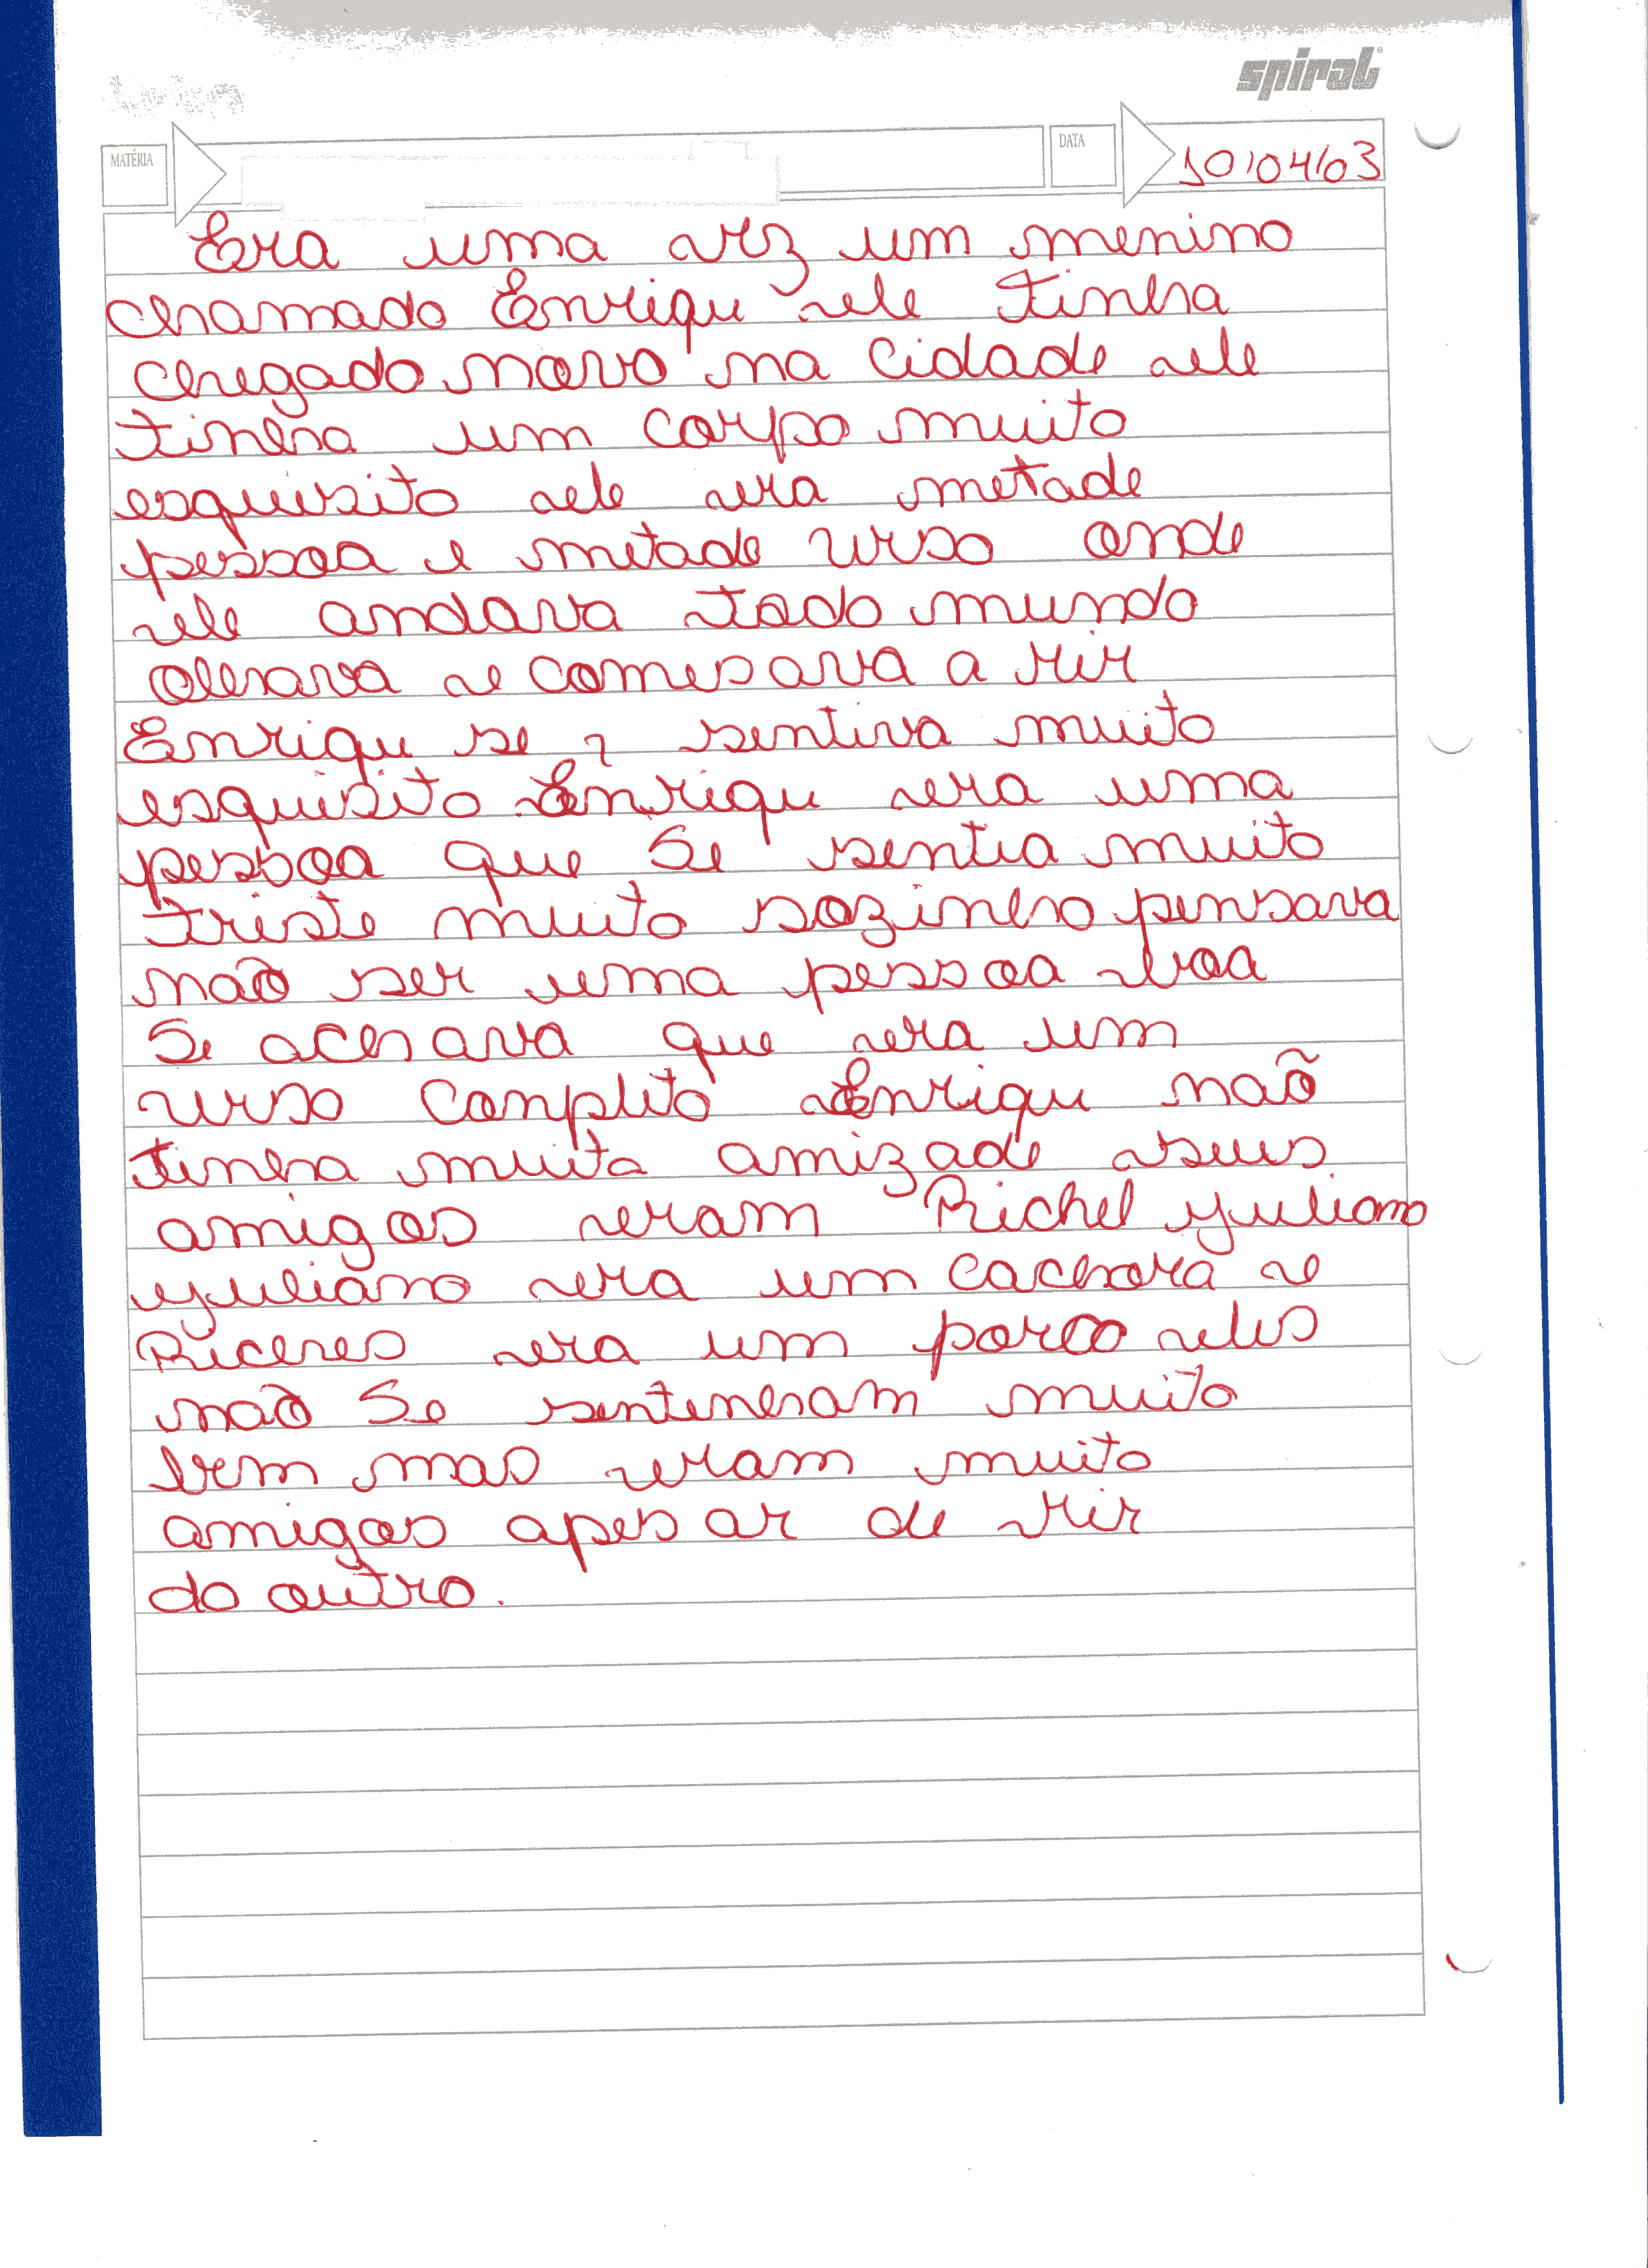 spiral
MATÉRIA DATA 10/04/03
Era uma vez um menino
chamado Enriqu ele tinha
chegado novo na cidade ele
tinha um corpo muito
esquisito ele era metade
pessoa e metade urso onde
ele andava todo mundo
olhava e comesava a rir
Enriqu se sentiva muito
esquisito Enriqu era uma
pessoa que se sentia muito
triste muito sozinho pensava
não ser uma pessoa boa
Se achava que era um
urso conpleto Enriqu não
tinha muita amizade seus
amigos eram Richel yuliano
yuliano era um cachora e
era um porco eles
não Se sentinham muito
bem mas eram muito
amigos apesar de rir
do outro.